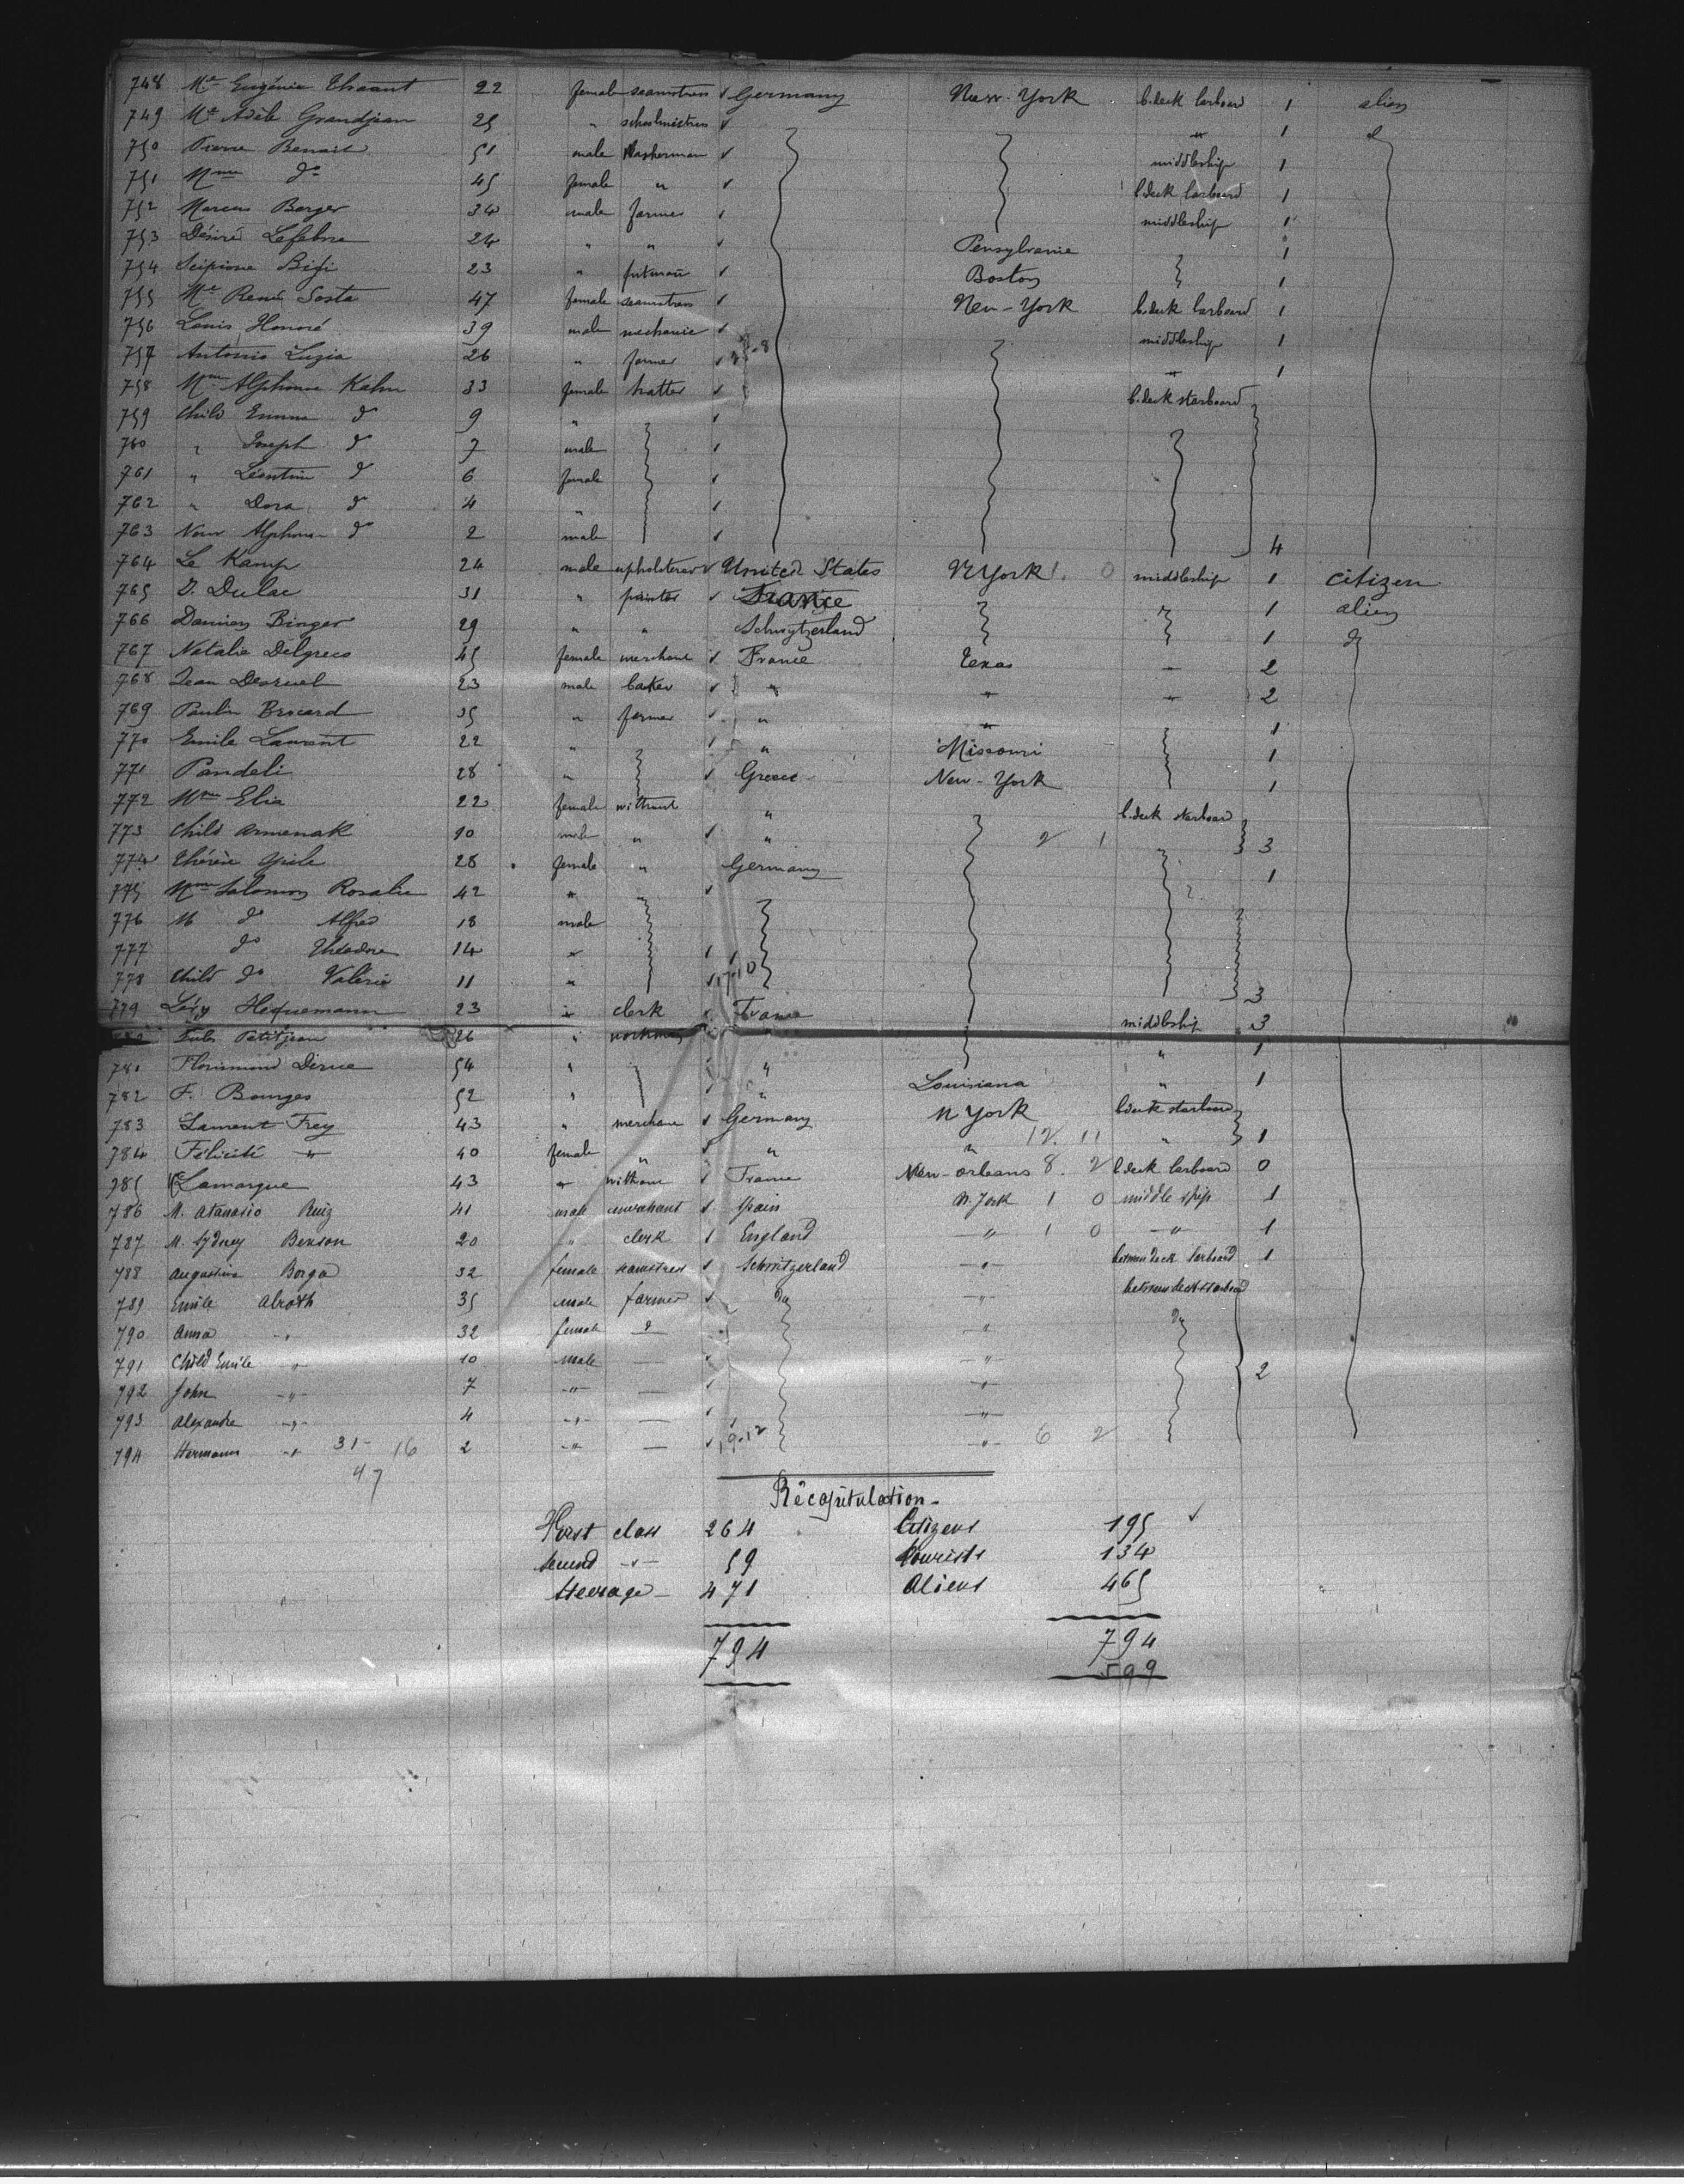 748 Me Eugénie Thaant 22 female seamstress Germany New-York b.deck larboard 1 alien
749 Me Adèle Grandjean 25 " schoolmistress " 1 d
750 Pierre Benait 51 male Washerman middleship 1
751 Mme do 45 female " b.deck larboard 1
752 Marcus Berger 34 male farmer middleship 1
753 Désiré Lefebre 24 " " Pensylvanie 1
754 Scipione Bifi 23 " Boston 1
755 Me René Sosta 47 female seamstress New-York b.deck larboard 1
756 Louis Honoré 39 male mechanic middleship 1
757 Antonio Luzia 26 " farmer " 1
758 Mme Alphonse Kahn 33 female hatter b.deck starboard
759 Child Emma do 9 "
760 " Joseph do 7 male
761 " Léontine do 6 female
762 " Dora do 4 "
763 Nour Alphonse do 2 male 4
764 Le Kamp 24 male upholsterer United States N York 1. 0 middleship 1 citizen
765 D. Dulac 31 " painter France 1 alien
766 Damien Binger 29 " " Schwytzerland 1 d
767 Natalie Delgreco 45 female merchant France Texas " 2
768 Jean Desruel 23 male baker " " " 2
769 Paulin Brocard 35 " farmer " " 1
770 Emile Laurent 22 " " Missouri 1
771 Pandeli 28 " Greece New-York 1
772 Mme Elia 22 female without " b.deck starboard
773 Child Armenak 10 male " " 2 1 3
774 Thérèse 28 female " Germany 1
775 Mme Salomon Rosalie 42 "
776 M do Alfred 18 male
777 do Théodore 14 "
778 Child do Valérie 11 " 3
779 Lévy Hequemann 23 " clerk France middleship 3
Jules Petitjean 26 " workman " " 1
781 Florismond Dirue 54 " " 1
782 F. Bourges 52 " " Louisiana "
783 Laurent Frey 43 " merchant Germany N York b.deck starboard
784 Félicité " 40 female " " " 12. 11 " 1
785 Me Lamarque 43 " without France New-Orleans 8. 2 b.deck larboard 0
786 M. Atanasio Ruiz 41 male merchant Spain N. York 1 0 middle ship 1
787 M. Sydney Benson 20 " clerk England " 1 0 " 1
788 Augustina Borga 32 female seamstress Schwitzerland " between deck larboard 1
789 Emile Alroth 35 male farmer do " between deck starboard
790 Anna " 32 female d " do
791 Child Emile " 10 male — " 2
792 John " 7 " — "
793 Alexandre " 4 " — "
794 Hermann " 31- 16 2 " — 9.12 " 6 2
47
Récapitulation-
First class 264 Citizens 195
Second " 59 Tourists 134
Steerage 471 Aliens 465
794 794
599